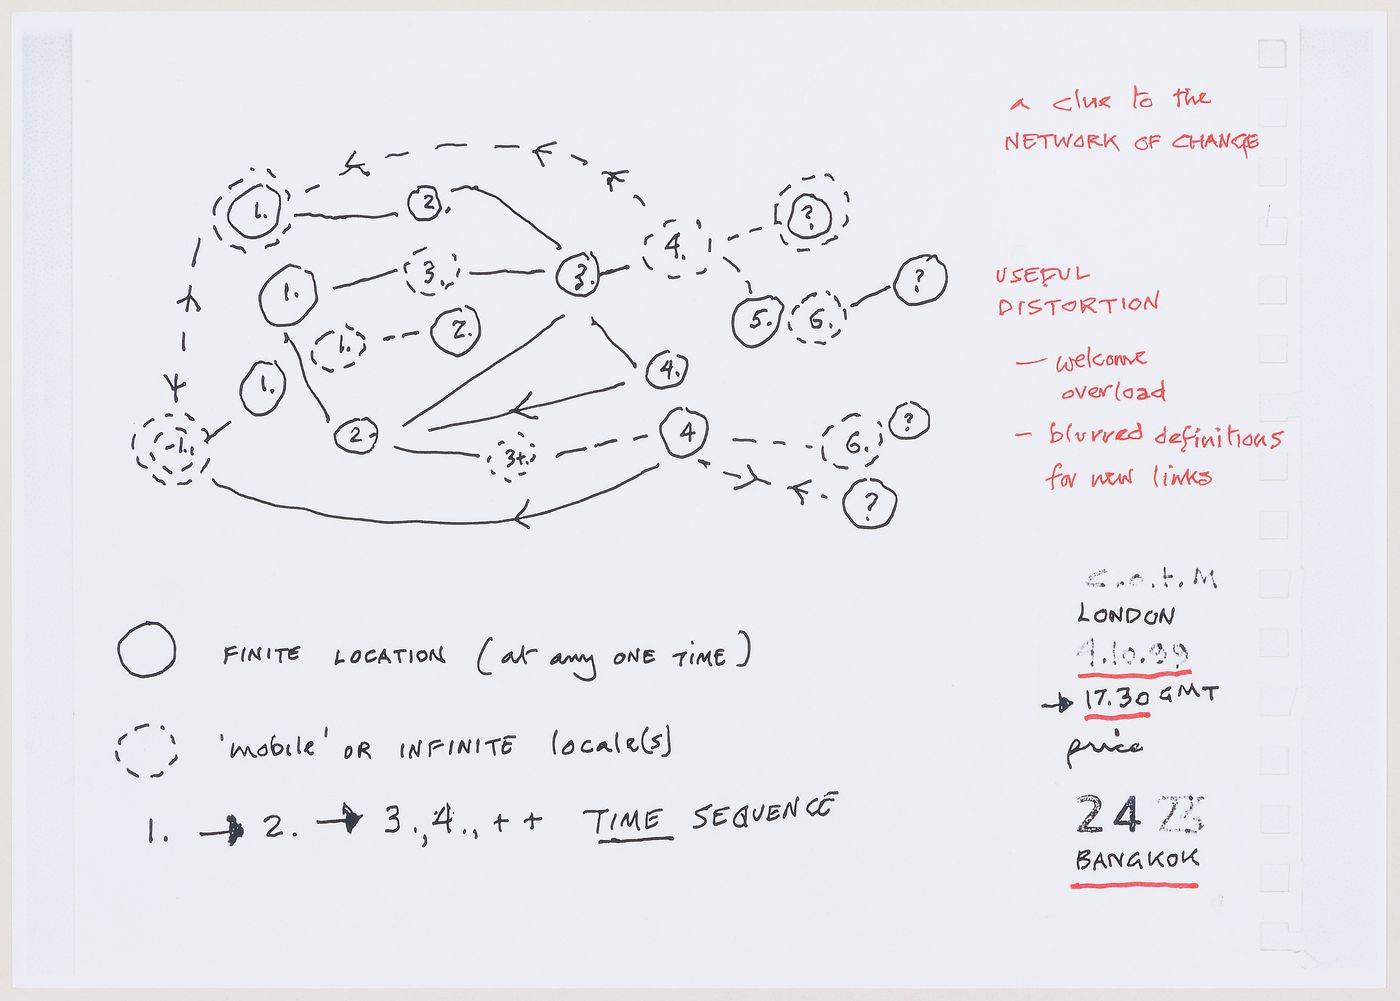 a clue to the
NETWORK OF CHANGE
1.
2.
?
4.
3.
3.
?
1.
5.
6.
USEFUL
DISTORTION
1.
2.
— welcome
overload
1.
4.
— blurred definitions
for new links
2.
4
6.
?
-1.
3+.
?
C.O.T.M
LONDON
4.10.99
→ 17.30 GMT
price
24
BANGKOK
FINITE LOCATION (at any ONE TIME)
'mobile' OR INFINITE locale(s)
1. → 2. → 3., 4., + + TIME SEQUENCE